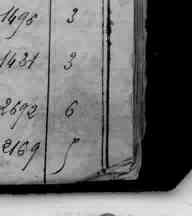 1495 3
1431 3
2692 6
2169 5